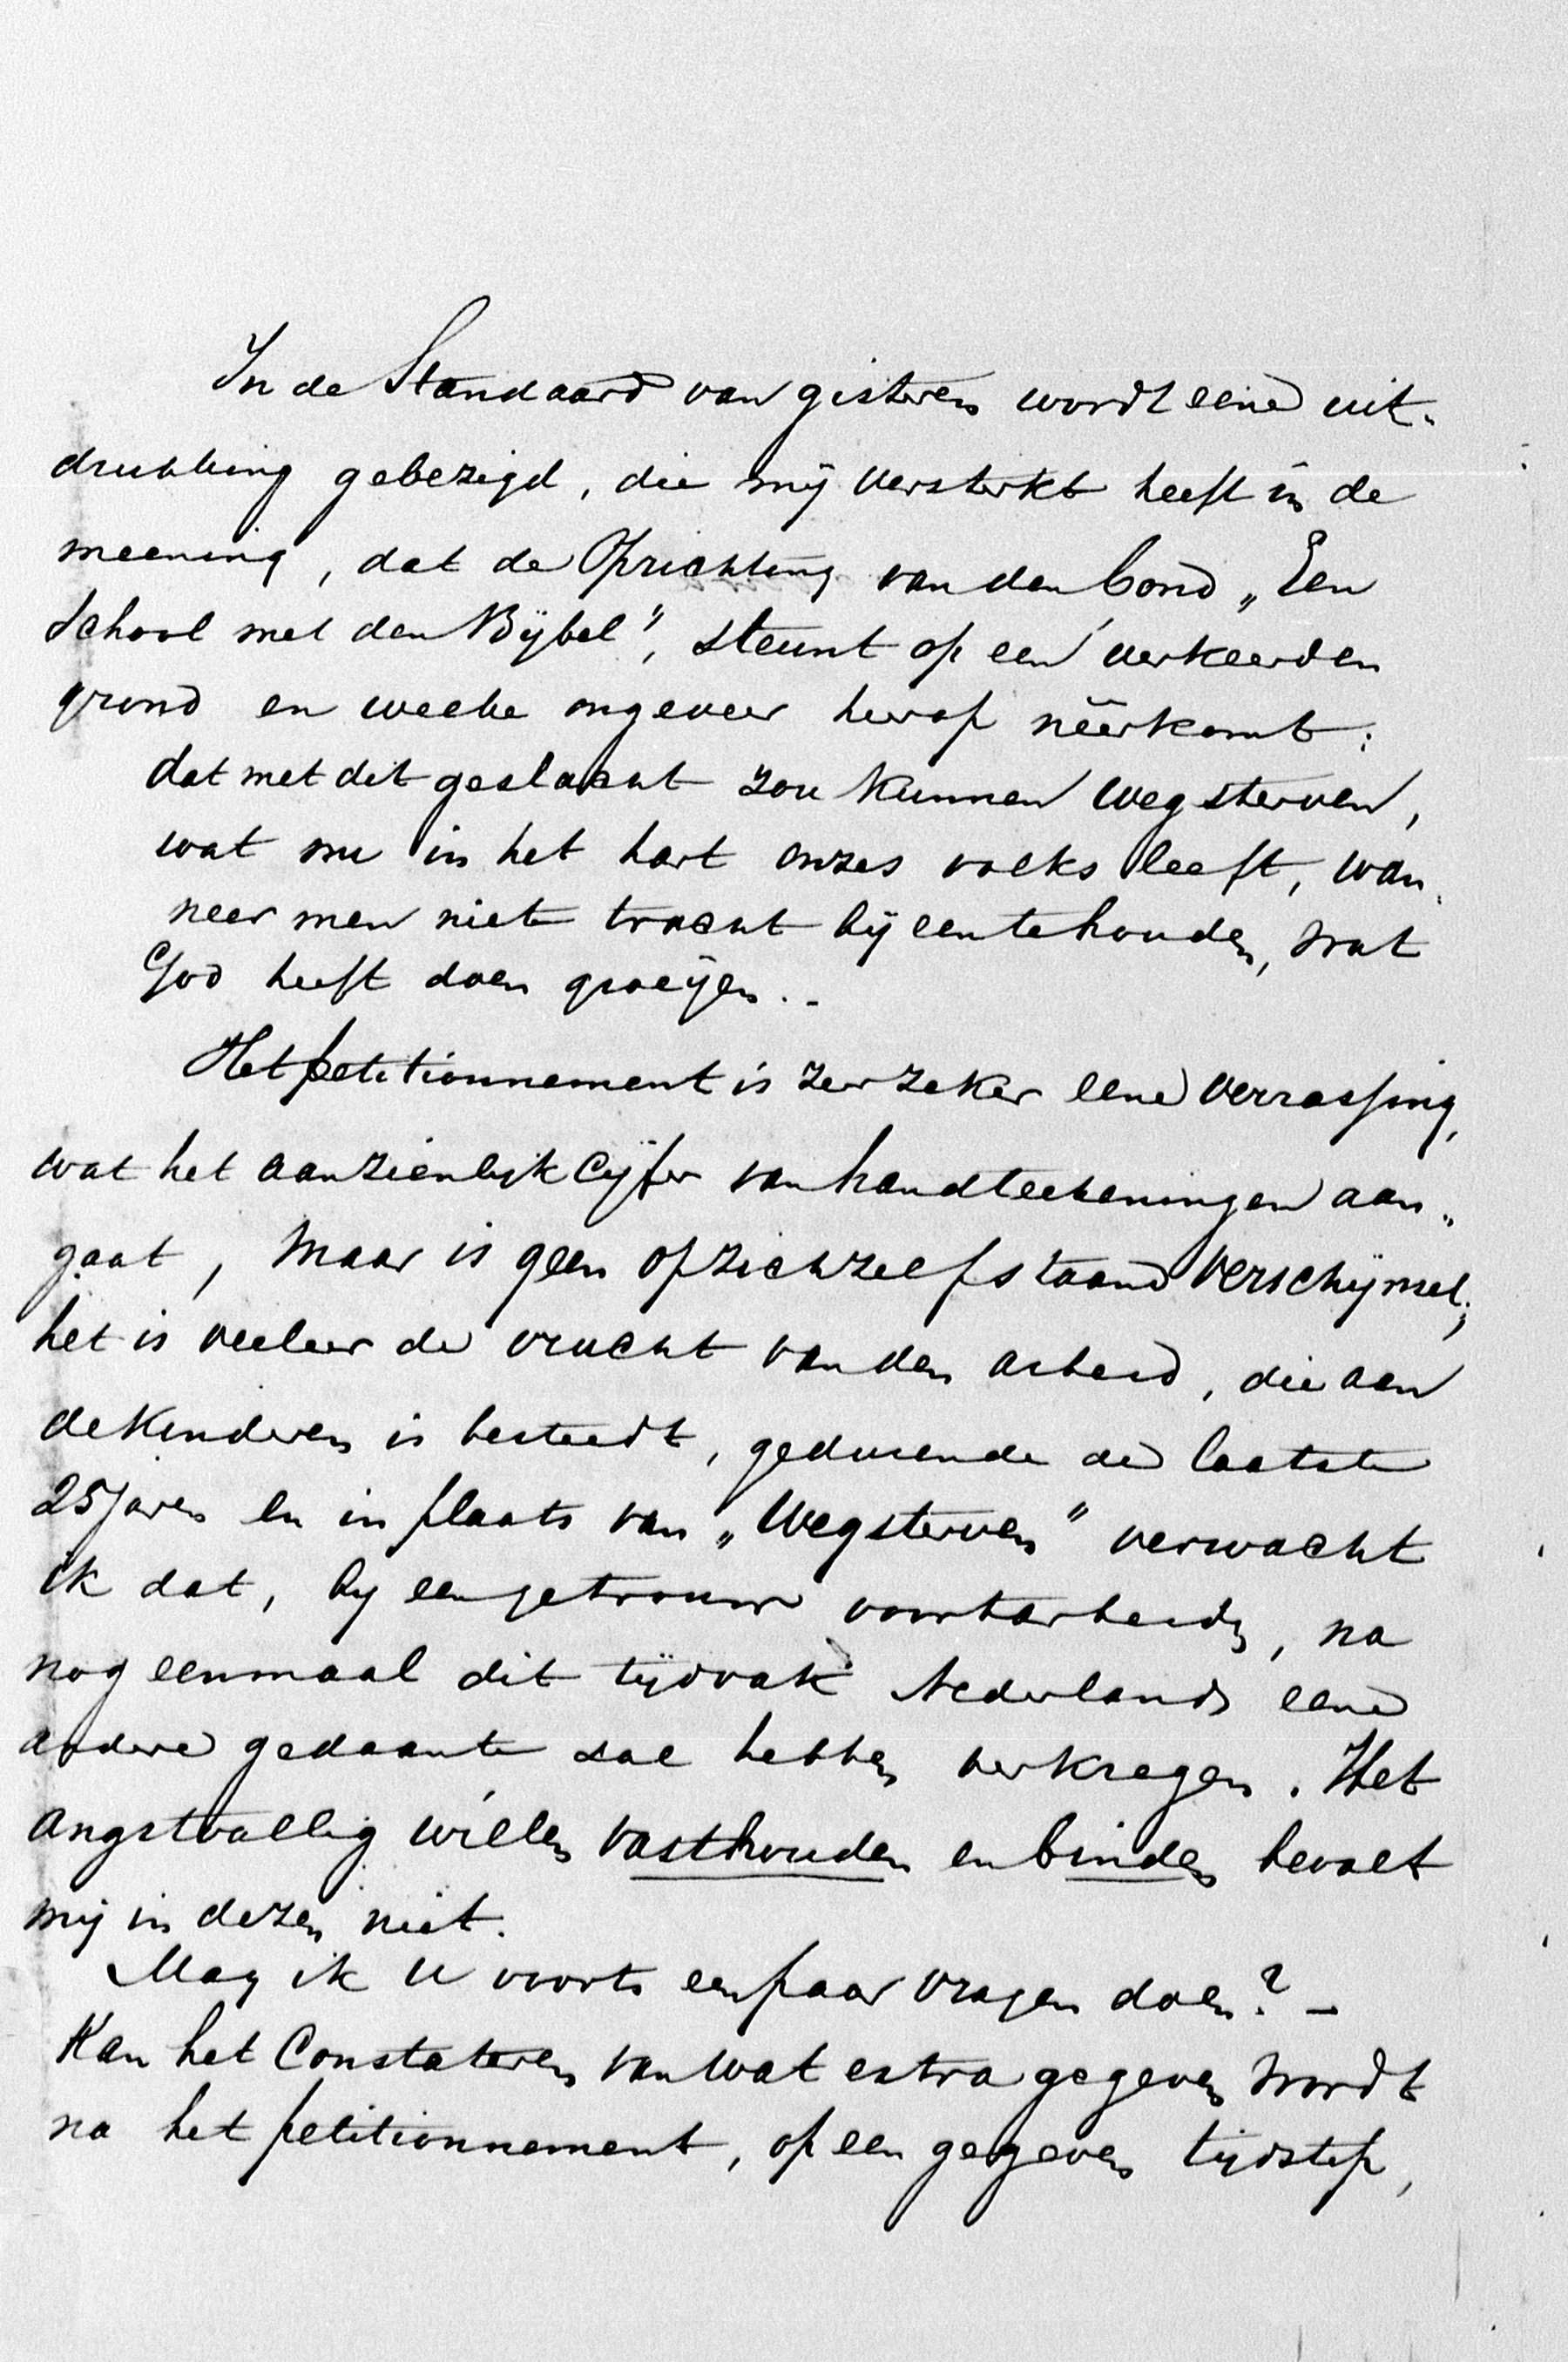 In de Standaard van gisteren wordt eene uit-
drukking gebezigd, die mij versterkt heeft in de
meening, dat de Oprichting van den bond „Een
School met den Bijbel", steunt op een verkeerden
grond en welke ongeveer hierop nêerkomt:
dat met dit geslacht zou kunnen wegsterven,
wat nu in het hart onzes volks leeft, wan-
neer men niet tracht bijeentehouden, wat
God heeft doen groeijen. -
Het petitionnement is zeer zeker eene verrassing,
wat het aanzienlijk Cijfer van handteekeningen aan-
gaat, maar is geen opzichzelfstaand verschijnsel;
het is veeleer de vrucht van den arbeid, die aan
de kinderen is besteedt, gedurende de laatste
25 jaren en in plaats van „Wegsterven" verwacht
ik dat, bij een getrouw voortarbeiden, na
nog eenmaal dit tijdvak Nederland eene
andere gedaante zal hebben verkregen. Het
angstvallig willen vasthouden en binden bevalt
mij in dezen niet.
Mag ik U voorts een paar vragen doen? -
Kan het Constateren van wat extra gegeven wordt
na het petitionnement, op een gegeven tijdstip,